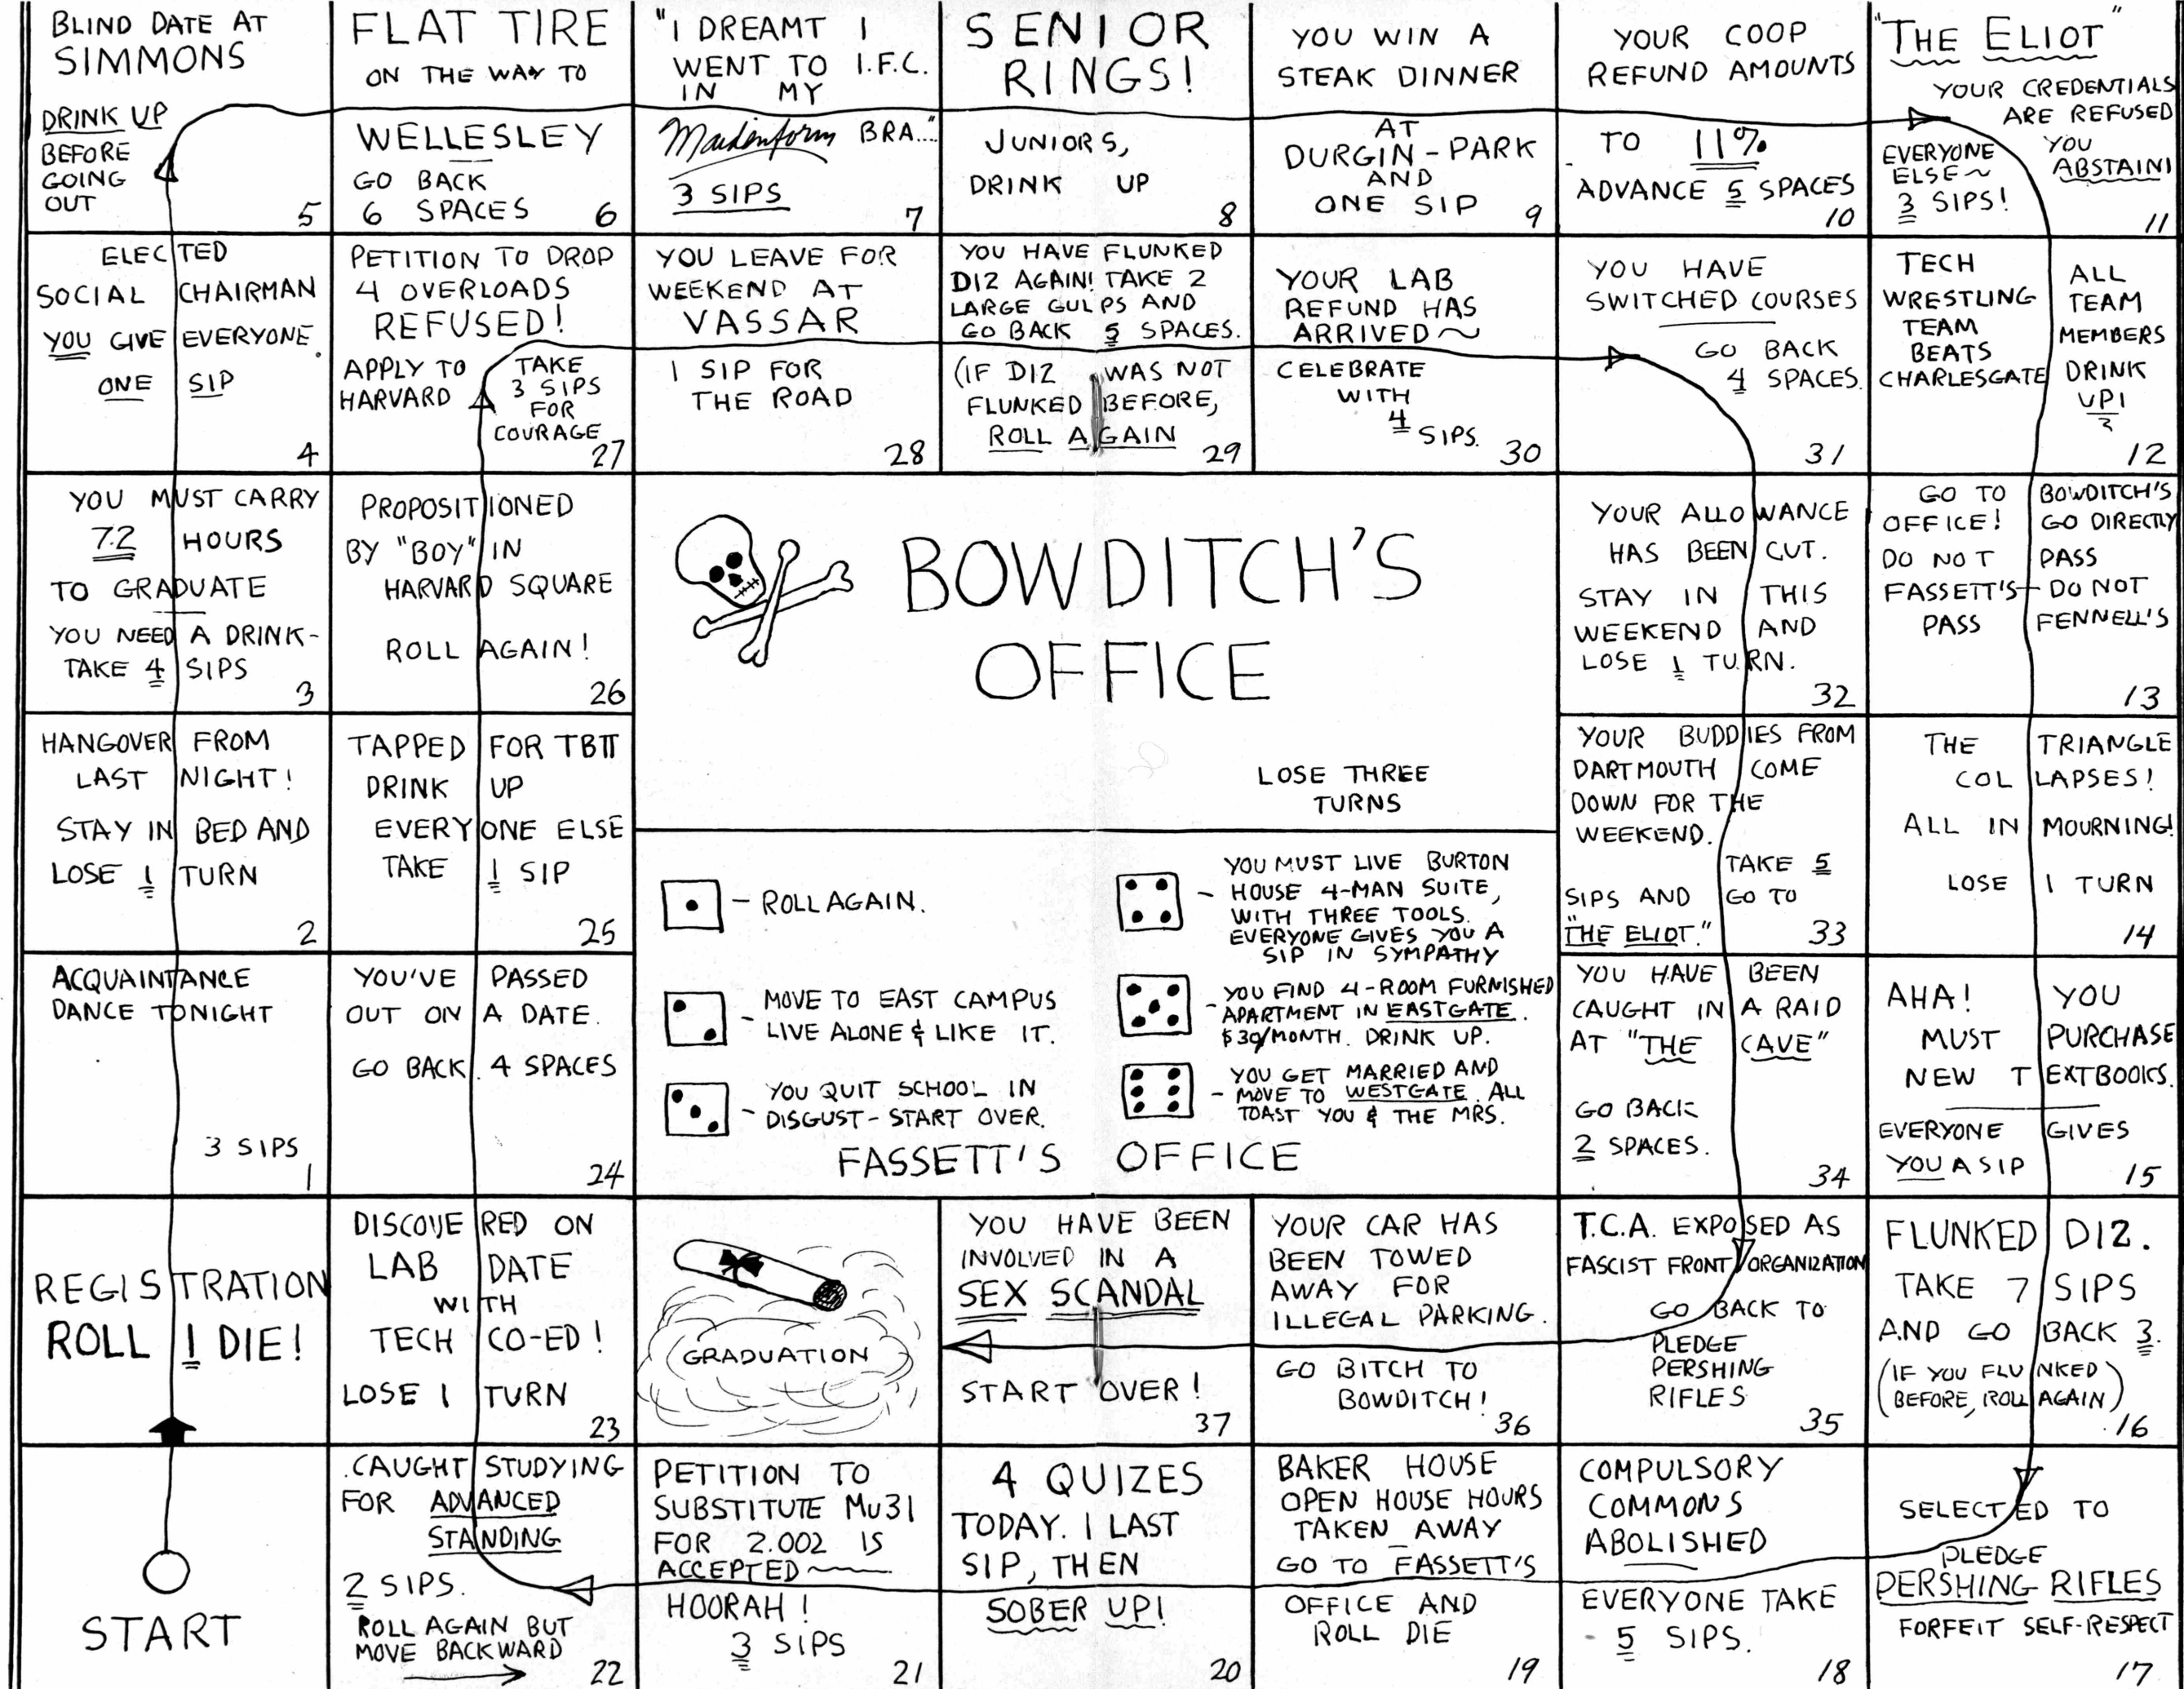 BLIND DATE AT
SIMMONS
DRINK UP
BEFORE
GOING
OUT
5
FLAT TIRE
ON THE WAY TO
WELLESLEY
GO BACK
6 SPACES
6
"I DREAMT I
WENT TO I.F.C.
IN MY
Maidenform BRA..."
3 SIPS
7
SENIOR
RINGS!
JUNIORS,
DRINK UP
8
YOU WIN A
STEAK DINNER
AT
DURGIN-PARK
AND
ONE SIP
9
YOUR COOP
REFUND AMOUNTS
TO 11%
ADVANCE 5 SPACES
10
"THE ELIOT"
YOUR CREDENTIALS
ARE REFUSED
YOU
ABSTAIN!
EVERYONE
ELSE~
3 SIPS!
11
ELECTED
SOCIAL CHAIRMAN
YOU GIVE EVERYONE
ONE SIP
4
PETITION TO DROP
4 OVERLOADS
REFUSED!
APPLY TO
HARVARD
TAKE
3 SIPS
FOR
COURAGE
27
YOU LEAVE FOR
WEEKEND AT
VASSAR
1 SIP FOR
THE ROAD
28
YOU HAVE FLUNKED
D12 AGAIN! TAKE 2
LARGE GULPS AND
GO BACK 5 SPACES.
(IF D12 WAS NOT
FLUNKED BEFORE,
ROLL AGAIN
29
YOUR LAB
REFUND HAS
ARRIVED~
CELEBRATE
WITH
4 SIPS.
30
YOU HAVE
SWITCHED COURSES
GO BACK
4 SPACES.
31
TECH
WRESTLING
TEAM
BEATS
CHARLESGATE
ALL
TEAM
MEMBERS
DRINK
UP!
12
YOU MUST CARRY
72 HOURS
TO GRADUATE
YOU NEED A DRINK-
TAKE 4 SIPS
3
PROPOSITIONED
BY "BOY" IN
HARVARD SQUARE
ROLL AGAIN!
26
BOWDITCH'S
OFFICE
LOSE THREE
TURNS
YOUR ALLOWANCE
HAS BEEN CUT.
STAY IN THIS
WEEKEND AND
LOSE 1 TURN.
32
GO TO BOWDITCH'S
OFFICE! GO DIRECTLY
DO NOT PASS
FASSETT'S- DO NOT
PASS FENNELL'S
13
HANGOVER FROM
LAST NIGHT!
STAY IN BED AND
LOSE 1 TURN
2
TAPPED FOR TBΠ
DRINK UP
EVERYONE ELSE
TAKE 1 SIP
25
YOUR BUDDIES FROM
DARTMOUTH COME
DOWN FOR THE
WEEKEND.
TAKE 5
SIPS AND GO TO
"THE ELIOT."
33
THE TRIANGLE
COLLAPSES!
ALL IN MOURNING!
LOSE 1 TURN
14
ACQUAINTANCE
DANCE TONIGHT
3 SIPS
1
YOU'VE PASSED
OUT ON A DATE.
GO BACK 4 SPACES
24
- ROLL AGAIN.
- MOVE TO EAST CAMPUS
LIVE ALONE & LIKE IT.
- YOU QUIT SCHOOL IN
DISGUST- START OVER.
- YOU MUST LIVE BURTON
HOUSE 4-MAN SUITE,
WITH THREE TOOLS.
EVERYONE GIVES YOU A
SIP IN SYMPATHY
- YOU FIND 4-ROOM FURNISHED
APARTMENT IN EASTGATE.
$30/MONTH. DRINK UP.
- YOU GET MARRIED AND
MOVE TO WESTGATE. ALL
TOAST YOU & THE MRS.
FASSETT'S OFFICE
YOU HAVE BEEN
CAUGHT IN A RAID
AT "THE CAVE"
GO BACK
2 SPACES.
34
AHA! YOU
MUST PURCHASE
NEW TEXTBOOKS.
EVERYONE GIVES
YOU A SIP
15
REGISTRATION
ROLL 1 DIE!
DISCOVERED ON
LAB DATE
WITH
TECH CO-ED!
LOSE 1 TURN
23
GRADUATION
YOU HAVE BEEN
INVOLVED IN A
SEX SCANDAL
START OVER!
37
YOUR CAR HAS
BEEN TOWED
AWAY FOR
ILLEGAL PARKING.
GO BITCH TO
BOWDITCH!
36
T.C.A. EXPOSED AS
FASCIST FRONT ORGANIZATION
GO BACK TO
PLEDGE
PERSHING
RIFLES
35
FLUNKED D12.
TAKE 7 SIPS
AND GO BACK 3.
(IF YOU FLUNKED
BEFORE, ROLL AGAIN)
16
START
CAUGHT STUDYING
FOR ADVANCED
STANDING
2 SIPS.
ROLL AGAIN BUT
MOVE BACKWARD
22
PETITION TO
SUBSTITUTE Mu31
FOR 2.002 IS
ACCEPTED~
HOORAH!
3 SIPS
21
4 QUIZES
TODAY. 1 LAST
SIP, THEN
SOBER UP!
20
BAKER HOUSE
OPEN HOUSE HOURS
TAKEN AWAY
GO TO FASSETT'S
OFFICE AND
ROLL DIE
19
COMPULSORY
COMMONS
ABOLISHED
EVERYONE TAKE
5 SIPS.
18
SELECTED TO
PLEDGE
PERSHING RIFLES
FORFEIT SELF-RESPECT
17